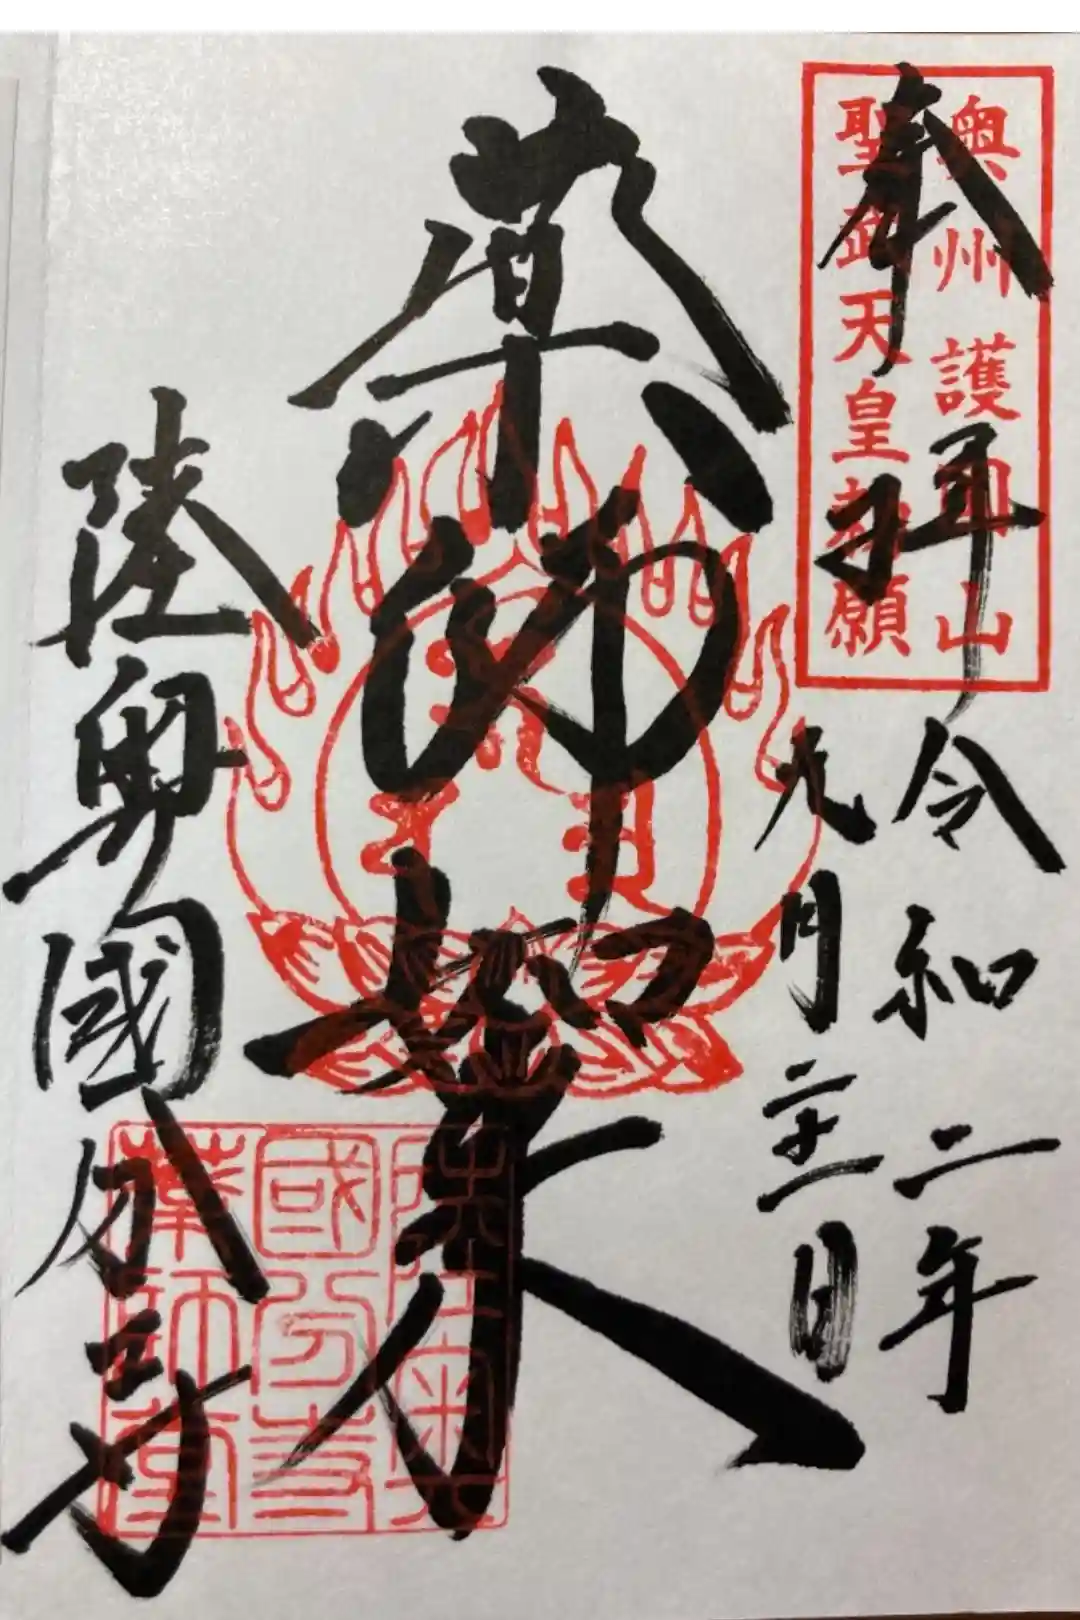 奉拜
奥州護國山
聖武天皇勅願
令和二年
九月二十一日
薬師如来
陸奥國分寺
陸奥
國分寺
薬師堂